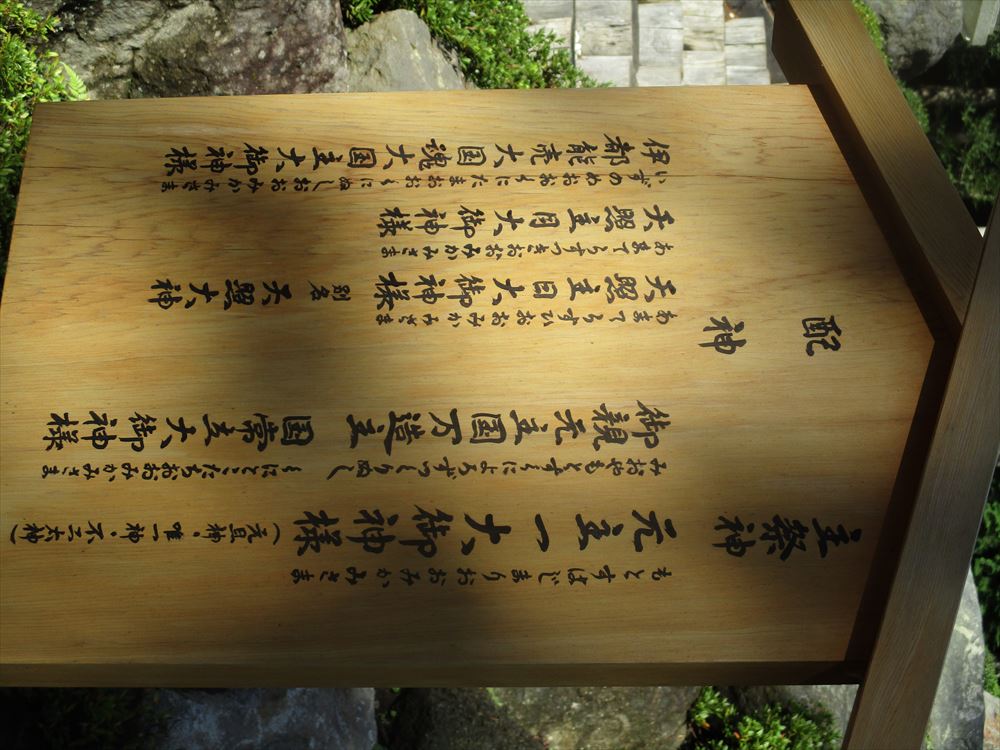 主祭神
もとすはじまりおおみかみさま
元主一大御神様（元亘神・唯一神・不二大神）
みおやもとすくによろずつくりぬしくにとこたちおおみかみさま
御親元主国万造主国常立大御神様
配神
あまてらすひおおみかみさま
天照主日大御神様 別名 天照大神
あまてらすつきおおみかみさま
天照主月大御神様
いずのめおおくにたまおおくにぬしおおみかみさま
伊都能売大国魂大国主大御神様